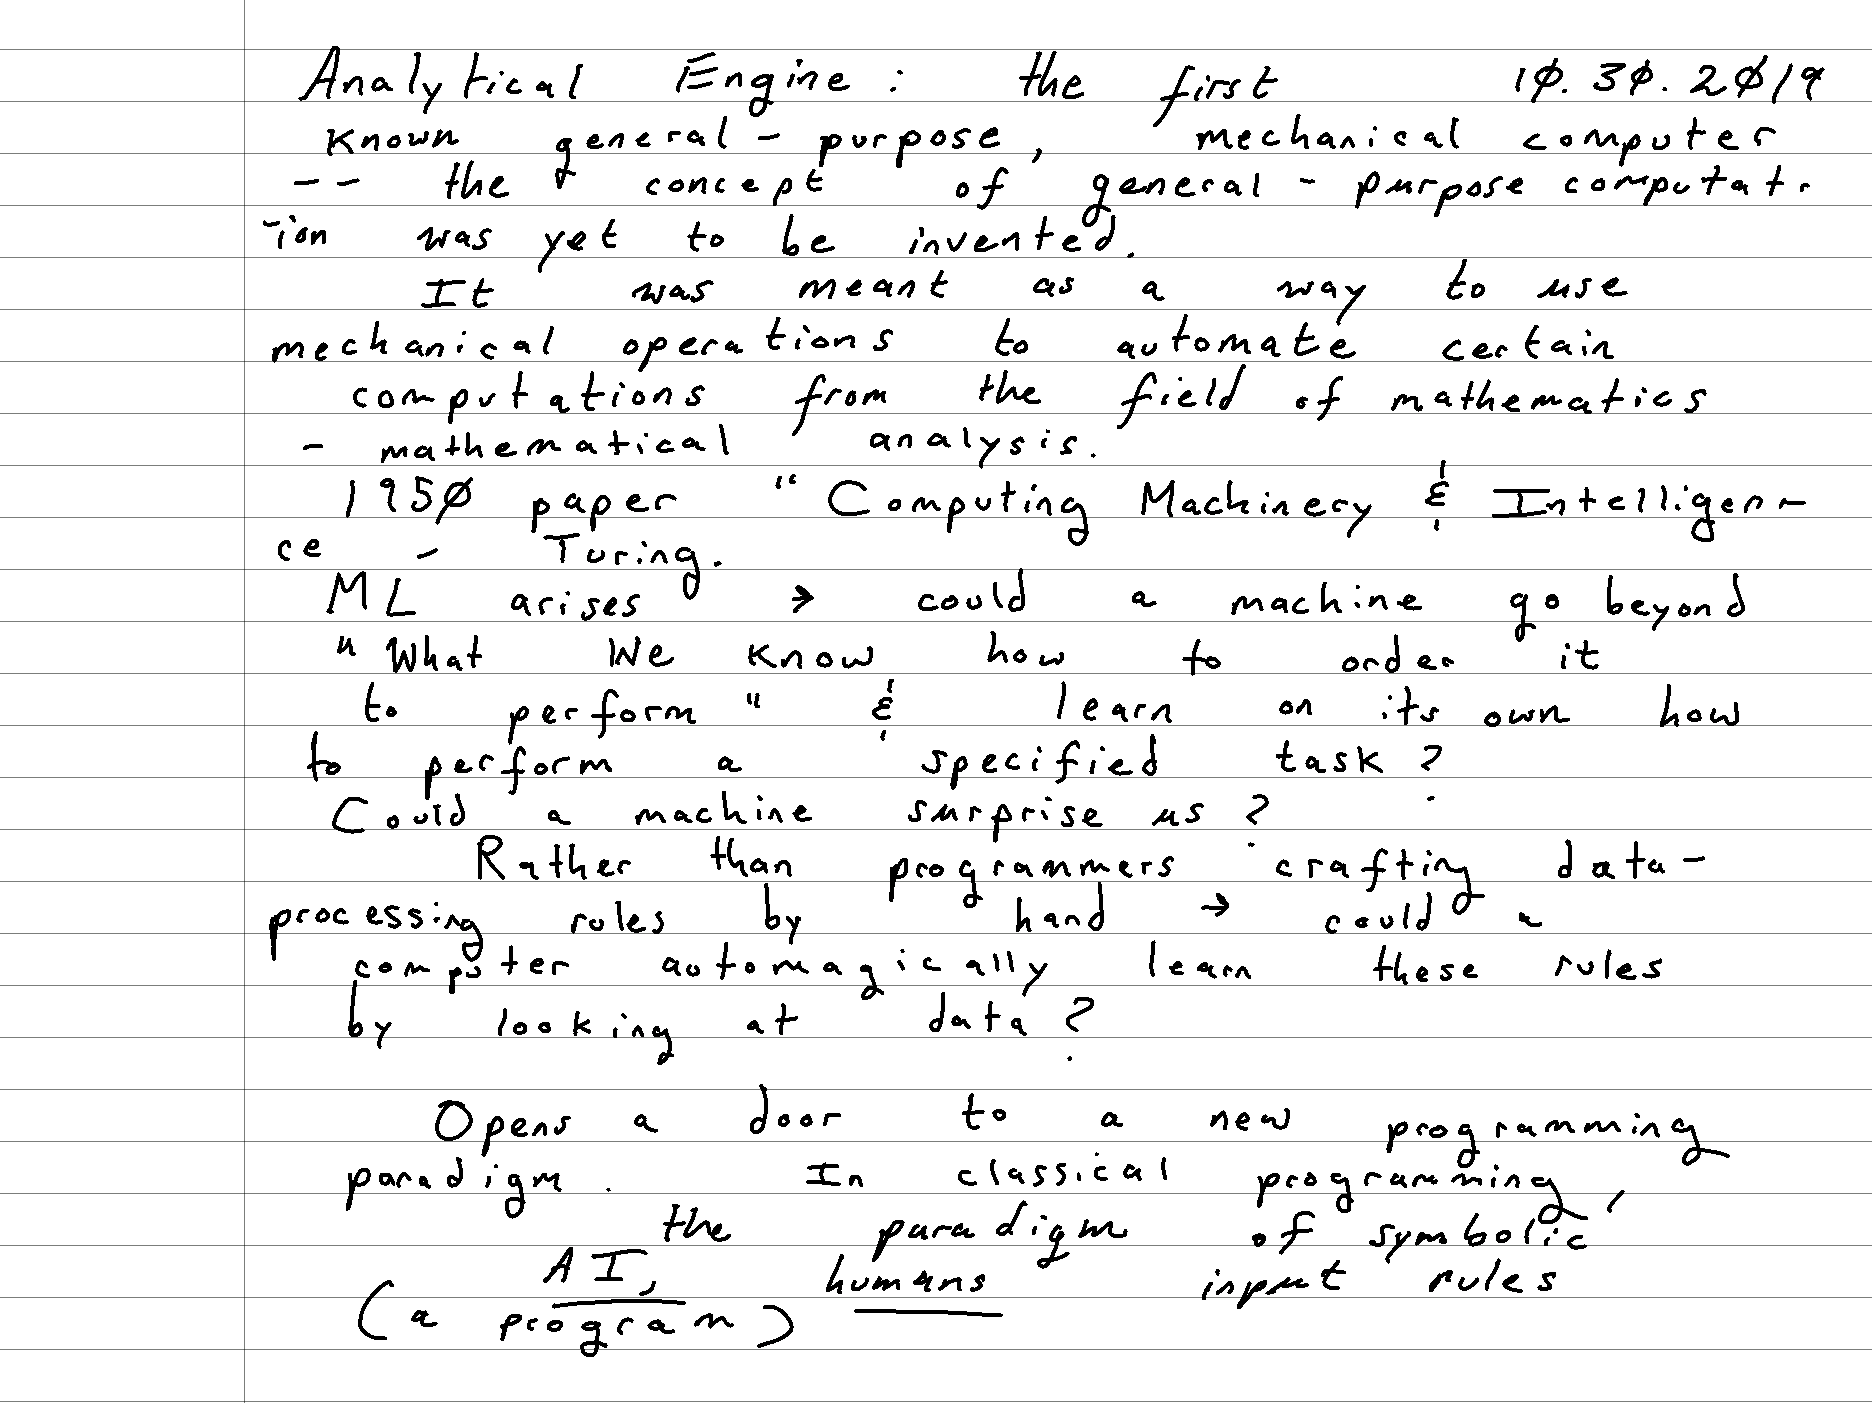 Analytical Engine : the first 10.30.2019
known general - purpose, mechanical computer
-- the concept of general - purpose computat-
-ion was yet to be invented.
It was meant as a way to use
mechanical operations to automate certain
computations from the field of mathematics
- mathematical analysis.
1950 paper "Computing Machinery & Intelligen-
ce - Turing.
ML arises → could a machine go beyond
"What we know how to order it
to perform" & learn on its own how
to perform a specified task?
Could a machine surprise us?
Rather than programmers crafting data-
processing rules by hand → could a
computer automagically learn these rules
by looking at data?
Opens a door to a new programming
paradigm. In classical programming,
the paradigm of symbolic
AI, humans input rules
(a program)